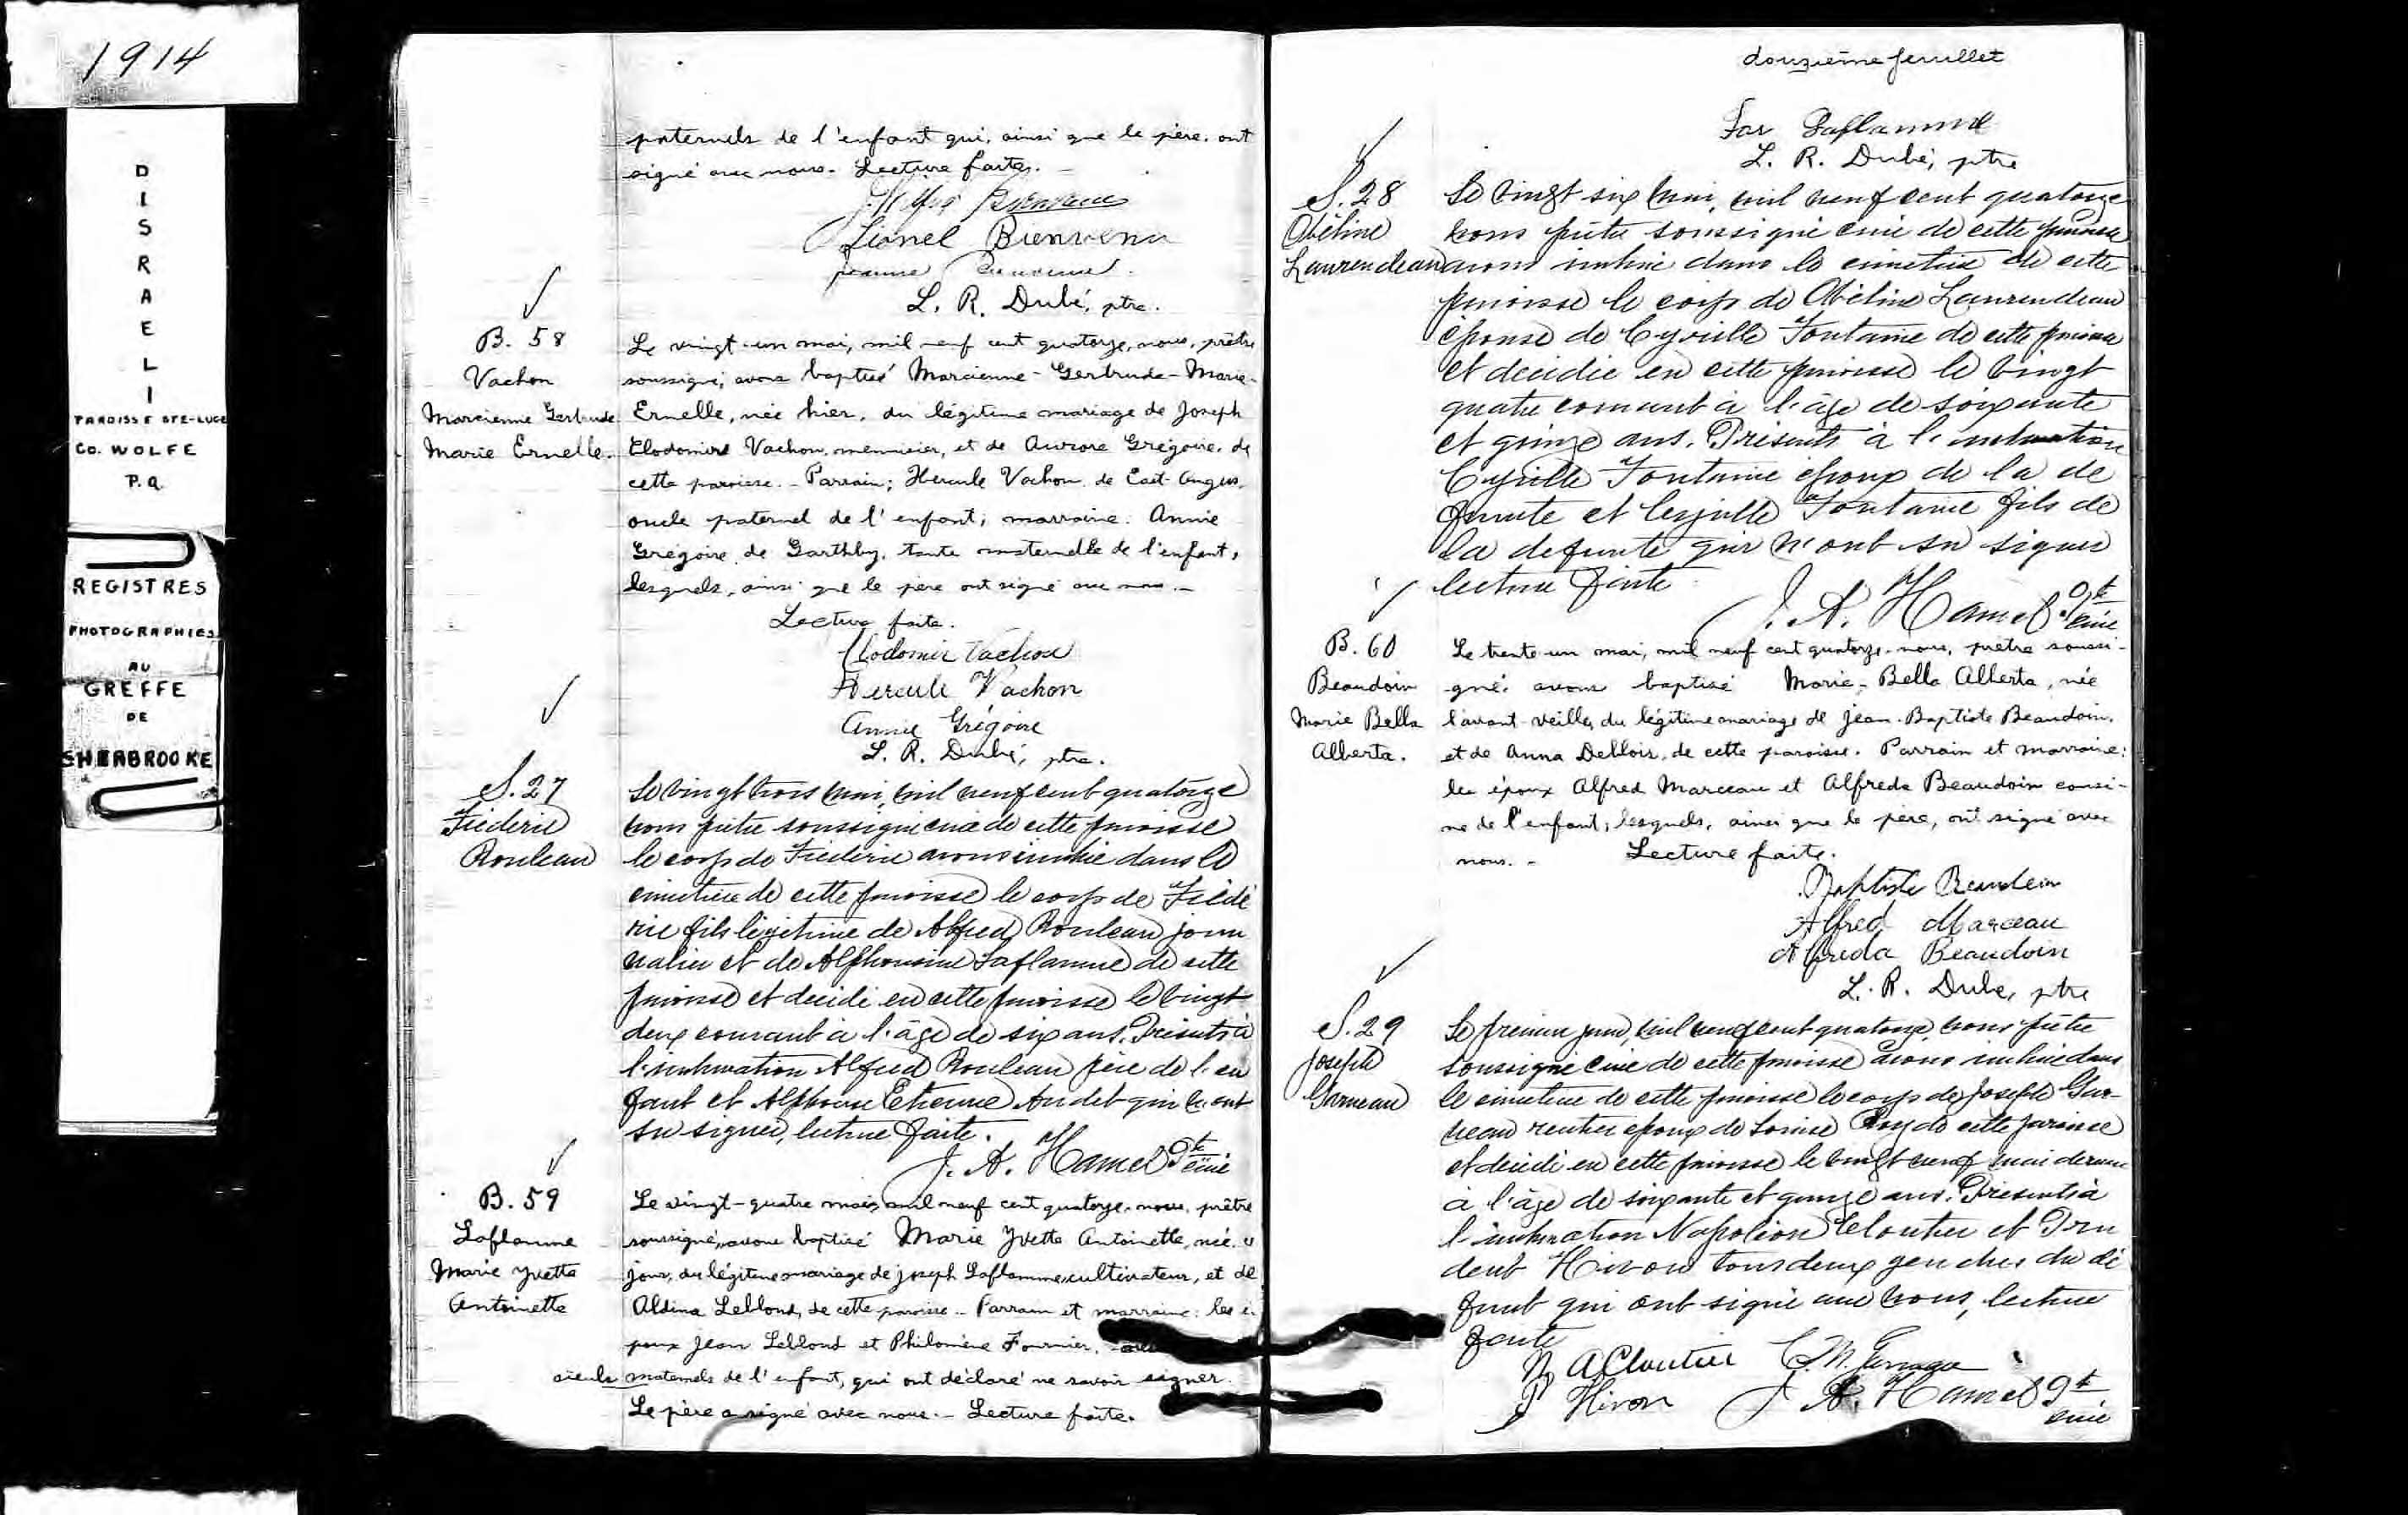 1914
DISRAELI
PAROISSE STE-LUCE
CO. WOLFE
P.Q.
REGISTRES
PHOTOGRAPHIES
AU
GREFFE
DE
SHERBROOKE
paternels de l'enfant qui, ainsi que le père, ont
signé avec nous. Lecture faite. -
Bienvenue
Lionel Bienvenu
L. R. Dubé, ptre.
B. 58
Vachon
Marcienne Gertrude
Marie Ernelle.
Le vingt-un mai, mil neuf cent quatorze, nous, prêtre
soussigné, avons baptisé Marcienne-Gertrude-Marie-
Ernelle, née hier, du légitime mariage de Joseph
Clodomire Vachon, menuisier, et de Aurore Grégoire, de
cette paroisse. - Parrain; Hercule Vachon, de East-Angus,
oncle paternel de l'enfant; marraine: Annie
Grégoire, de Garthby, tante maternelle de l'enfant,
lesquels, ainsi que le père ont signé avec nous. -
Lecture faite.
Clodomir Vachon
Hercule Vachon
Annie Grégoire
L. R. Dubé, ptre.
S. 27
Fréderic
Rouleau
Le vingt trois mai, mil neuf cent quatorze
nous prêtre soussigné curé de cette paroisse
le corps de Fréderic avons inhumé dans le
cimetière de cette paroisse le corps de Frédé
ric fils légitime de Alfred Rouleau jour
nalier et de Alphonsine Laflamme de cette
paroisse et décédé en cette paroisse le vingt
deux courant à l'âge de six ans. Présents à
l'inhumation Alfred Rouleau père de l'en
fant et Alphonse Etienne Audet qui n'ont
su signer, lecture faite.
J. A. Hamel Ptre curé
B. 59
Laflamme
Marie Yvette
Antoinette
Le vingt-quatre mai, mil neuf cent quatorze, nous, prêtre
soussigné, avons baptisé Marie Yvette Antoinette, née ce
jour, du légitime mariage de Joseph Laflamme, cultivateur, et de
Aldina Leblond, de cette paroisse. - Parrain et marraine: les é-
poux Jean Leblond et Philomène Fournier,
aïeuls maternels de l'enfant, qui ont déclaré ne savoir signer.
Le père a signé avec nous. - Lecture faite.
douzième feuillet
Jos Laflamme
L. R. Dubé, ptre
S. 28
Obéline
Laurendeau
Le vingt six mai, mil neuf cent quatorze
nous prêtre soussigné curé de cette paroisse
avons inhumé dans le cimetière de cette
paroisse le corps de Obéline Laurendeau
épouse de Cyrille Fontaine de cette paroisse
et décédée en cette paroisse le vingt
quatre courant à l'âge de soixante
et quinze ans. Présents à l'inhumation
Cyrille Fontaine époux de la dé
funte et Cyrille Fontaine fils de
la défunte qui n'ont su signer
lecture faite
J. A. Hamel Ptre curé
B. 60
Beaudoin
Marie Bella
Alberta.
Le trente-un mai, mil neuf cent quatorze, nous, prêtre soussi-
gné, avons baptisé Marie-Bella Alberta, née
l'avant-veille, du légitime mariage de Jean-Baptiste Beaudoin,
et de Anna Deblois, de cette paroisse. Parrain et marraine:
les époux Alfred Marceau et Alfreda Beaudoin cousi-
ne de l'enfant, lesquels, ainsi que le père, ont signé avec
nous. - Lecture faite.
Baptiste Beaudoin
Alfred Marceau
Alfreda Beaudoin
L. R. Dubé, ptre
S. 29
Joseph
Garneau
Le premier juin, mil neuf cent quatorze, nous prêtre
soussigné curé de cette paroisse avons inhumé dans
le cimetière de cette paroisse le corps de Joseph Gar-
neau rentier époux de Louise Roy de cette paroisse
et décédé en cette paroisse le vingt neuf mai dernier
à l'âge de soixante et quinze ans. Présents à
l'inhumation Napoléon Cloutier et Pru
dent Hivon tous deux gendres du dé
funt qui ont signé avec nous, lecture
faite
N A Cloutier
P Hivon J A. Hamel Ptre
curé